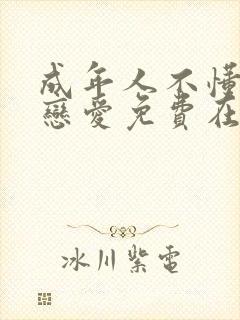 成年人不懂
戀愛免費在
冰川紫電